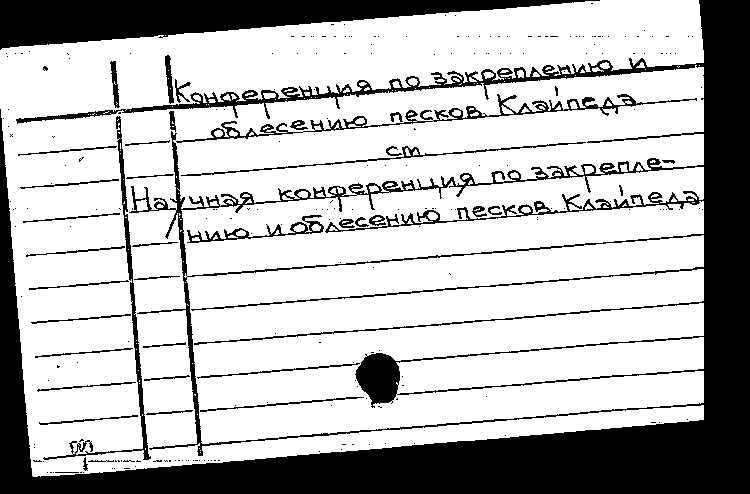 Конференция по закреплению и
облесению песков. Клайпеда
ст
Научная конференция по закрепле-
нию и облесению песков. Клайпеда